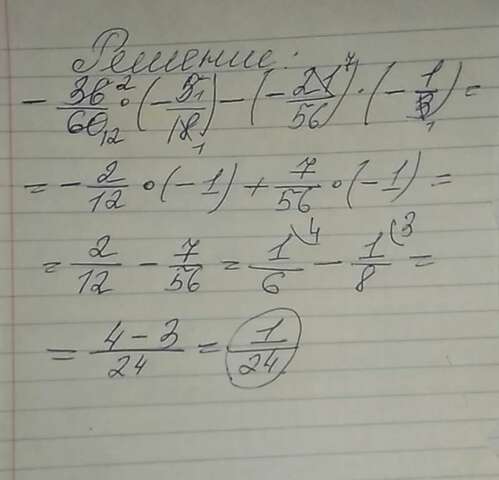 Решение:
- 36²/60₁₂ · (- 5₁/18₁) - (- 21⁷/56) · (- 1/3₁) =
= - 2/12 · (-1) + 7/56 · (-1) =
= 2/12 - 7/56 = 1\4/6 - 1(3/8 =
= 4-3/24 = 1/24